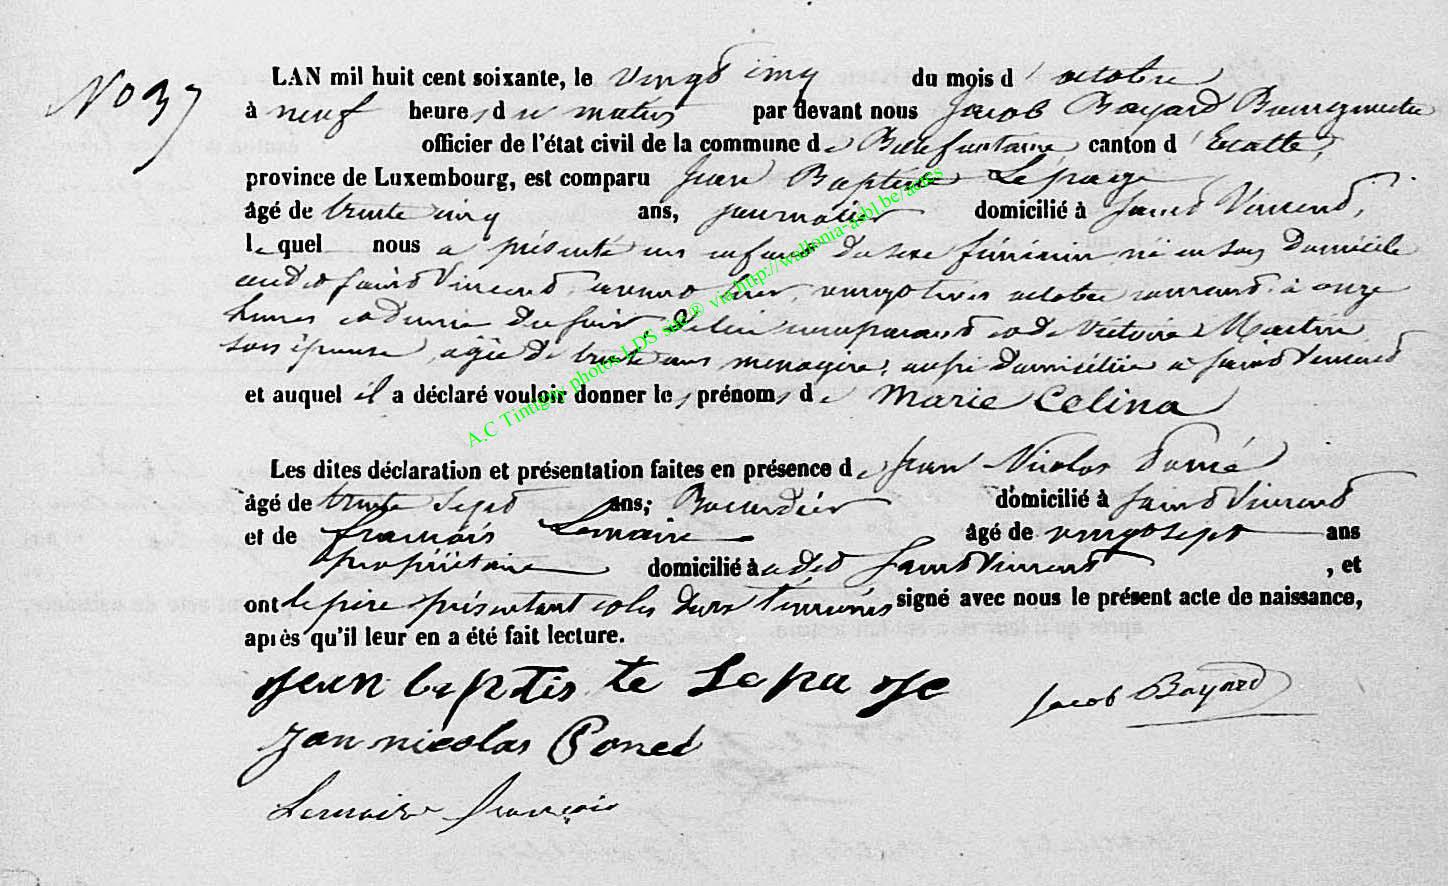 No 37
LAN mil huit cent soixante, le vingt cinq du mois d'octobre
à neuf heures du matin par devant nous Jacob Bayard Bourgmestre
officier de l'état civil de la commune de Bellefontaine canton d'Etalle,
province de Luxembourg, est comparu Jean Baptiste Lepage
âgé de trente cinq ans, journalier domicilié à Saint Vincent,
lequel nous a présenté un enfant du sexe féminin né en son domicile
audit Saint Vincent, avant hier, vingt trois octobre courant à onze
heures et demie du soir, de lui comparant et de Victoire Martin
son épouse, agée de trente ans menagère, aussi domiciliée à Saint Vincent
et auquel il a déclaré vouloir donner les prénoms de Marie Celina
Les dites déclaration et présentation faites en présence de Jean Nicolas
âgé de trente sept ans; domicilié à Saint Vincent
et de François Lemaire âgé de vingt sept ans
propriétaire domicilié à Saint Vincent, et
ont le père présentant et les deux témoins signé avec nous le présent acte de naissance,
après qu'il leur en a été fait lecture.
Jean baptiste Lepage
Jacob Bayard
Jan nicolas
Lemaire françois
A.C Tintigny photos LDS sur ® via http://wallonia-asbl.be/actes